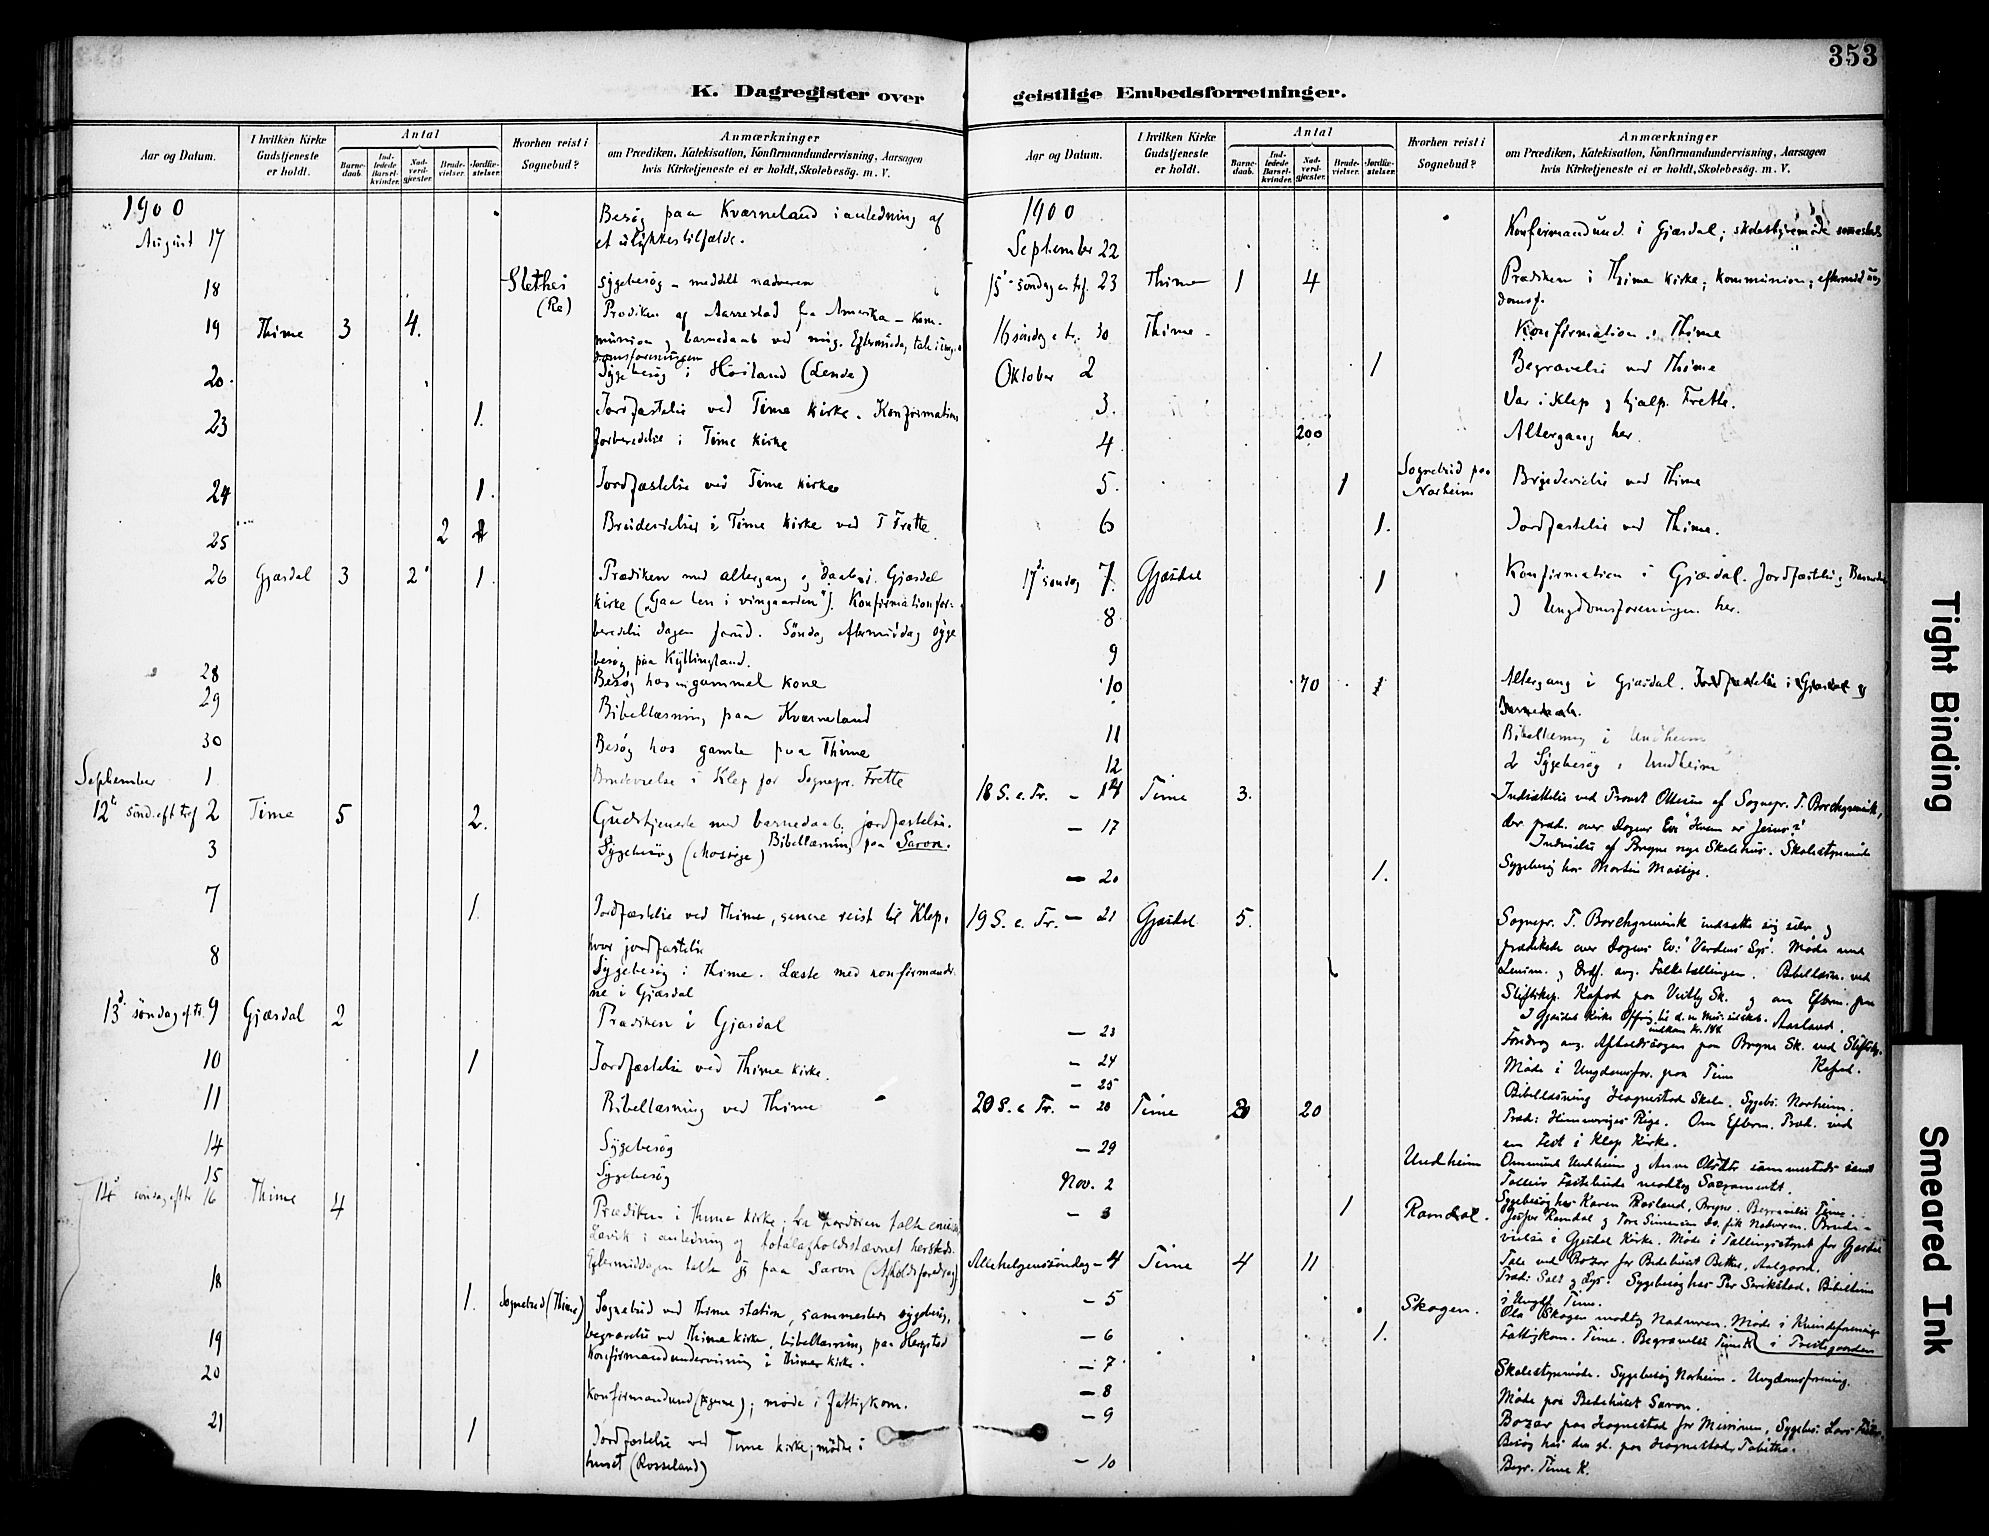 353
K. Dagregister over
Aar og Datum.
I hvilken Kirke Gudstjeneste er holdt.
Antal
Barne-daab.
Ind-ledede Barsel-kvinder.
Nad-verd-gjæster.
Brude-vielser.
Jordfæ-stelser.
Hvorhen reist i Sognebud?
Anmærkninger
om Prædiken, Katekisation, Konfirmandundervisning, Aarsagen
hvis Kirketjeneste ei er holdt, Skolebesøg. m. V.
1900
August 17 Besøg paa Kværneland i anledning af
et ulykkestilfælde.
18 Slethei (Re) Sygebesøg – meddelt nadveren
19 Thime 3 4. Prediken af Aarrestad fra Amerika – kom-
munion og barnedaab ved mig. Eftermiddag tale i ung-
domsforeningen
20 Sygebesøg i Høiland (Lende)
23 1. Jordfæstelse ved Time kirke. Konfirmation
forberedelse i Time kirke
24 1. Jordfæstelse ved Time kirke
25 2 Brudevielser i Time kirke ved T Frette
26 Gjæsdal 3 2 1. Prædiken med altergang og daab i Gjæsdal
kirke ("Gaa hen i vingaarden"). Konfirmationsfor-
beredelse dagen forud. Søndag eftermiddag syge
besøg paa Kyllingland.
28 Besøg hos en gammel kone
29 Bibellæsning paa Kværneland
30 Besøg hos gamle paa Thime
September 1. Brudevielse i Klep for Sognepr. Frette
12te sønd. eft tref 2 Time 5 2. Gudstjeneste med barnedaab, jordfæstelse.
3 Sygebesøg (Mossige) Bibellæsning paa Saron.
7 1. Jordfæstelse ved Thime, senere reist til Klep,
hvor jordfæstelse
8 Sygebesøg i Thime. Læste med konfirmander
ne i Gjæsdal
13d søndag eftr. 9 Gjæsdal 2 Prædiken i Gjæsdal
10 1 Jordfæstelse ved Thime kirke.
11 Bibellæsning ved Thime
14 Sygebesøg
15 Sygebesøg
14d søndag eftr 16 Thime 4 Prædiken i Thime kirke; fra kordøren talte
Lavik i anledning totalafholdsstævnet hersteds.
Eftermiddagen talte jeg paa Saron (Afholdsforedrag)
18 1. Sognebud (Thime) Sognebud ved Thime station, sammesteds sygebesøg,
begravelse ved Thime kirke, bibellæsning paa
19 Konfirmandundervisning i Thime kirke.
20 Konfirmandund; møde i fattigkom.
21 1 Jordfæstelse ved Time kirke; møde i
huset (Rosseland)
geistlige Embedsforretninger.
Aar og Datum.
I hvilken Kirke Gudstjeneste er holdt.
Antal
Barne-daab.
Ind-ledede Barsel-kvinder.
Nad-verd-gjæster.
Brude-vielser.
Jordfæ-stelser.
Hvorhen reist i Sognebud?
Anmærkninger
om Prædiken, Katekisation, Konfirmandundervisning, Aarsagen
hvis Kirketjeneste ei er holdt, Skolebesøg. m. V.
1900
September 22 Konfirmandund i Gjæsdal; skolestyremøde sammesteds
15d søndag e tref. 23 Thime 1 4 Prædiken i Thime kirke; kommunion; eftermid ung
domsf.
16 søndag e tr. 30 Thime Konfirmation i Thime
Oktober 2 1 Begravelse ved Thime
3. Var i Klep og hjalp Frette.
4 200 Altergang her.
5. 1 Sognebud paa Norheim Brudevielse ved Thime
6 1. Jordfæstelse ved Thime.
17d søndag 7. Gjæsdal 1 Konfirmation i Gjæsdal. Jordfæstelse
8 I Ungdomsforeningen her.
9
10 70 1 Altergang i Gjæsdal. Jordfæstelse i Gjæsdal og
Barnedaab.
11 Bibellæsning i Undheim
12 2 Sygebesøg i Undheim
18 S. e. Tr. – 14 Time 3. Indsættelse ved Provst Olsen af Sognepr. T. Borchgrevink,
der præd. over Dagens Ev: "Hvem er Jesus?"
– 17 Indvielse af Bryne nye Skolehus. Skolestyremøde
– 20 1. Sygebesøg hos Morten Mossige.
19 S. e. Tr. – 21 Gjæsdal 5. Sognepr. T. Borchgrevink indsatte sig selv og
prædikede over Dagens Ev: "Verdens Lys". Møde med
Lensm. og Ordf. ang. Folketællingen. Bibellæsn. ved
Stiftskap. Kafod paa Sk. og om Efterm. paa
I Gjæsdal Kirke Offring til d. n. Mis. selsk. Aarland.
indkom Kr. 144
– 23 Foredrag ang. Afholdssagen paa Bryne Sk. ved Stiftskap.
– 24 Møde i Ungdomsfor. paa Time Kafod.
– 25 Bibellæsning Hognestad Skole. Sygebes. Norheim.
20 S. e Tr. – 28 Time 20 Præd: Himmeriges Rige. Om Efterm. Præd. ved
en Fest i Klep Kirke.
– 29 Undheim Ommund Undheim og Anna sammesteds samt
Nov. 2 modtog Sacramentet.
Sygebesøg hos Karen Rosland, Bryne. Begravelse Time.
– 3 1 Ramdal. Ramdal og Tore Simensen do. fik Nadveren. Brude-
vielse i Gjesdal Kirke. Møde i Tællingsstyret for Gjesdal
Allehelgenssøndag – 4 Time 4 11 Tale ved Bazar for Bedehuset Bethel, Aalgaard.
Præd: Salt og Lys. Sygebesøg hos Per Serikstad. Bibeltime
i Ungdf. Time.
– 5 Skogen. Ola Skogen modtog Nadveren. Møde i Kvindeforening
– 6 1. Fattigkom. Time. Begravelse Time K. i Prestegaarden
– 7 Skolestyremøde. Sygebesøg Norheim. Ungdomsforening.
– 8 Møde paa Bedehuset Saron.
– 9 Bazar paa Hognestad for Missionen, Sygebes. Lars
Besøg hos den gl. paa Hognestad, Tabitha.
– 10 Begr. Time K.
Tight Binding
Smeared Ink